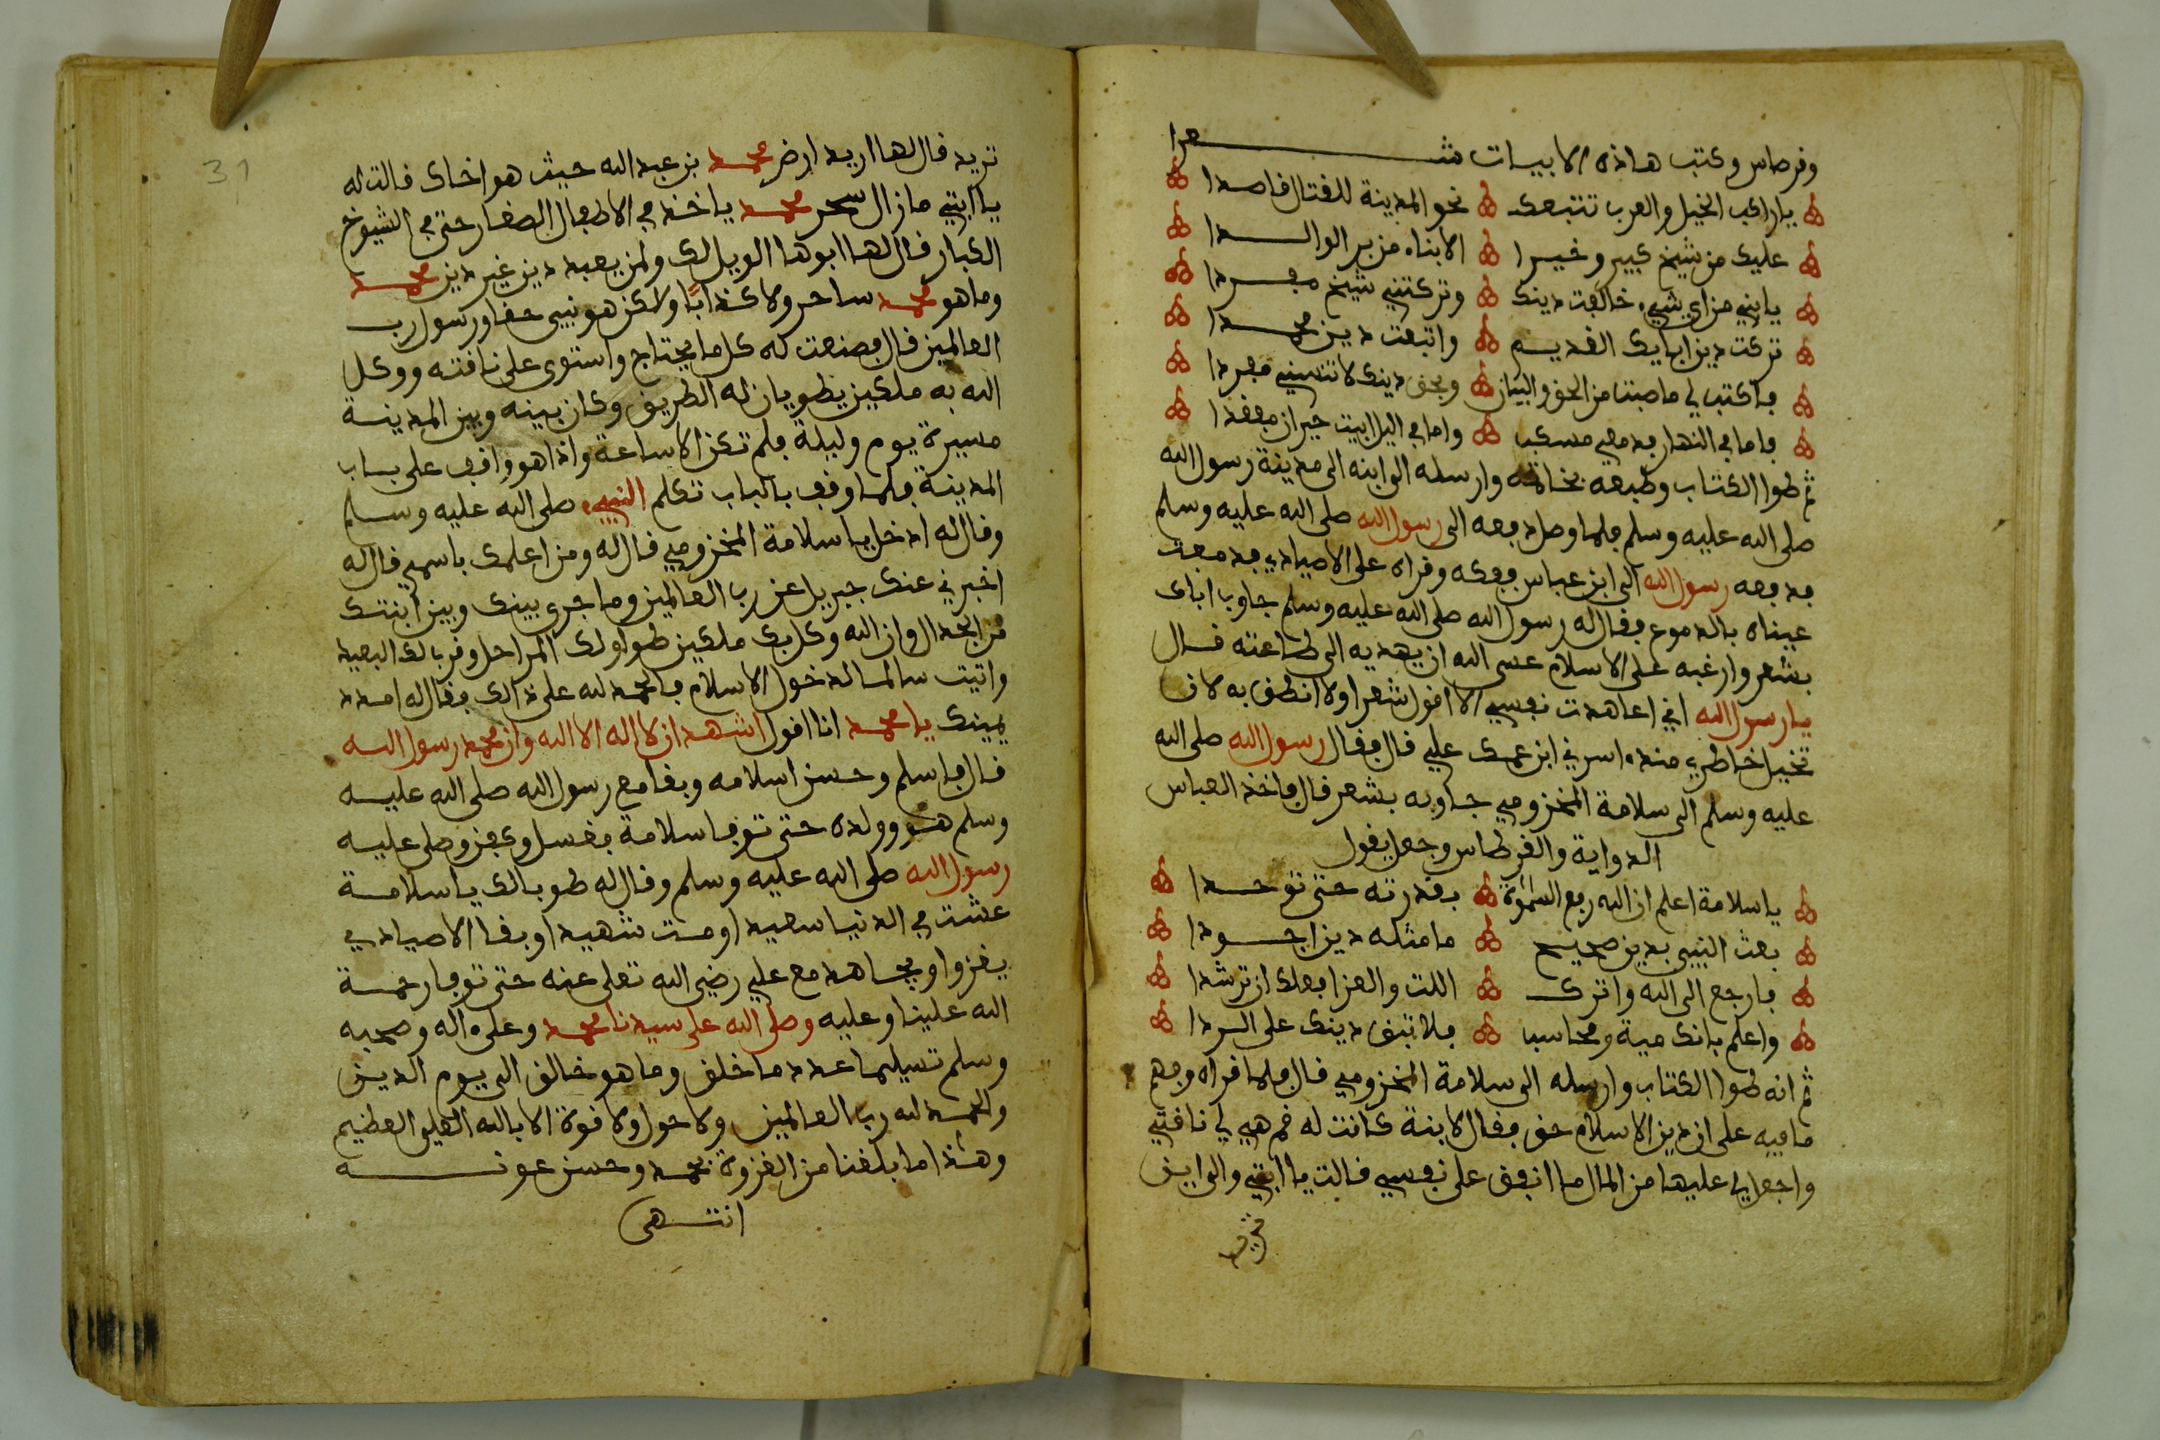 وقرطاس وكتب هاذه الابيات شعرا
ياراكب الخيل والعرب تتبعك نحو المدينة للقتال قاصدا
عليك من شيخ كبير وخيرا الابناه من بر الوالدا
يابني من اي شيء خالفت دينك وتركتني شيخ مفردا
تركت دين ابايك القديم واتبعت دين محمدا
فاكتب لي ما صبت من الحق والبيان وبحق دينك لا تنسني مفردا
فاما في النهار فدمعي مسكب واما في اليل ابيت حيران مفقدا
ثم طوا الكتاب وطبعه بخاتمه وارسله الى ابنه الى مدينة رسول الله
صلى الله عليه وسلم فلما وصل دفعه الى رسول الله صلى الله عليه وسلم
فدفعه رسول الله الى ابن عباس ففكه وقراه على الاصيادي فدمعت
عيناه بالدموع فقال له رسول الله صلى الله عليه وسلم جاوب اباك
بشعر وارغبه على الاسلام عسى الله ان يهديه الى طاعته قال
يارسول الله اني اعاهدت نفسي الا اقول شعرا ولا انطق به لان
تخيل خاطري منذ اسرني ابن عمك علي قال فقال رسول الله صلى الله
عليه وسلم الى سلامة المخزومي جاوبه بشعر قال فاخذ العباس
الدواية والقرطاس وجعل يقول
ياسلامة اعلم ان الله رفع السموة بقدرته حتى توحدا
بعث النبي بدين صحيح ما مثله دين اجودا
فارجع الى الله واترك اللت والعزا فعلك ان ترشدا
واعلم بانك مية ومحاسبا فلا تبق دينك على الردا
ثم انه طوا الكتاب وارسله الى سلامة المخزومي قال فلما قراه وفهم
ما فيه على ان دين الاسلام حق فقال لابنة كانت له قم هي لي ناقتي
واجعلي عليها من المال ما انفق على نفسي قالت يا ابتي والى اين
تريد
تريد قال لها اريد ارض محمد بن عبد الله حيث هو اخاك قالت له
يا ابتي مازال سحر محمد ياخذ في الاطفال الصغار حتى في الشيوخ
الكبار قال لها ابوها الويل لك ولمن يعبد دين غير دين محمد
وما هو محمد ساحر ولا كذابا ولاكن هو نبي حقا ورسول رب
العالمين قال فصنعت له كل ما يحتاج واستوى على ناقته ووكل
الله به ملكين يطويان له الطريق وكان بينه وبين المدينة
مسيرة يوم وليلة فلم تكن الا ساعة واذا هو واقف على باب
المدينة فلما وقف بالباب تكلم النبي صلى الله عليه وسلم
وقال له ادخل يا سلامة المخزومي قال له ومن اعلمك باسمي قال له
اخبرني عنك جبريل عن رب العالمين وما جرى بينك وبين ابنتك
من الجدال وان الله وكل بك ملكين طواو لك المراحل وقربا لك البعيد
واتيت سالما لدخول الاسلام فالحمد لله على ذالك فقال له امدد
يمينك يا محمد انا اقول اشهد ان لا اله الا الله وان محمد رسول الله
قال فاسلم وحسن اسلامه وبقا مع رسول الله صلى الله عليه
وسلم هو وولده حتى توفا سلامة فغسل وكفن وصلى عليه
رسول الله صلى الله عليه وسلم وقال له طوبا لك يا سلامة
عشت في الدنيا سعيدا ومت شهيدا وبقا الاصيادي
يغزوا ويجاهد مع علي رضي الله تعلى عنه حتى توفا رحمة
الله علينا وعليه وصلى الله على سيدنا محمد وعلى اله وصحبه
وسلم تسليما عدد ما خلق وما هو خالق الى يوم الدين
والحمد لله رب العالمين ولا حول ولا قوة الا بالله العلي العظيم
وهذا ما بلغنا من الغزوة بحمد وحسن عونه
انتهى
31